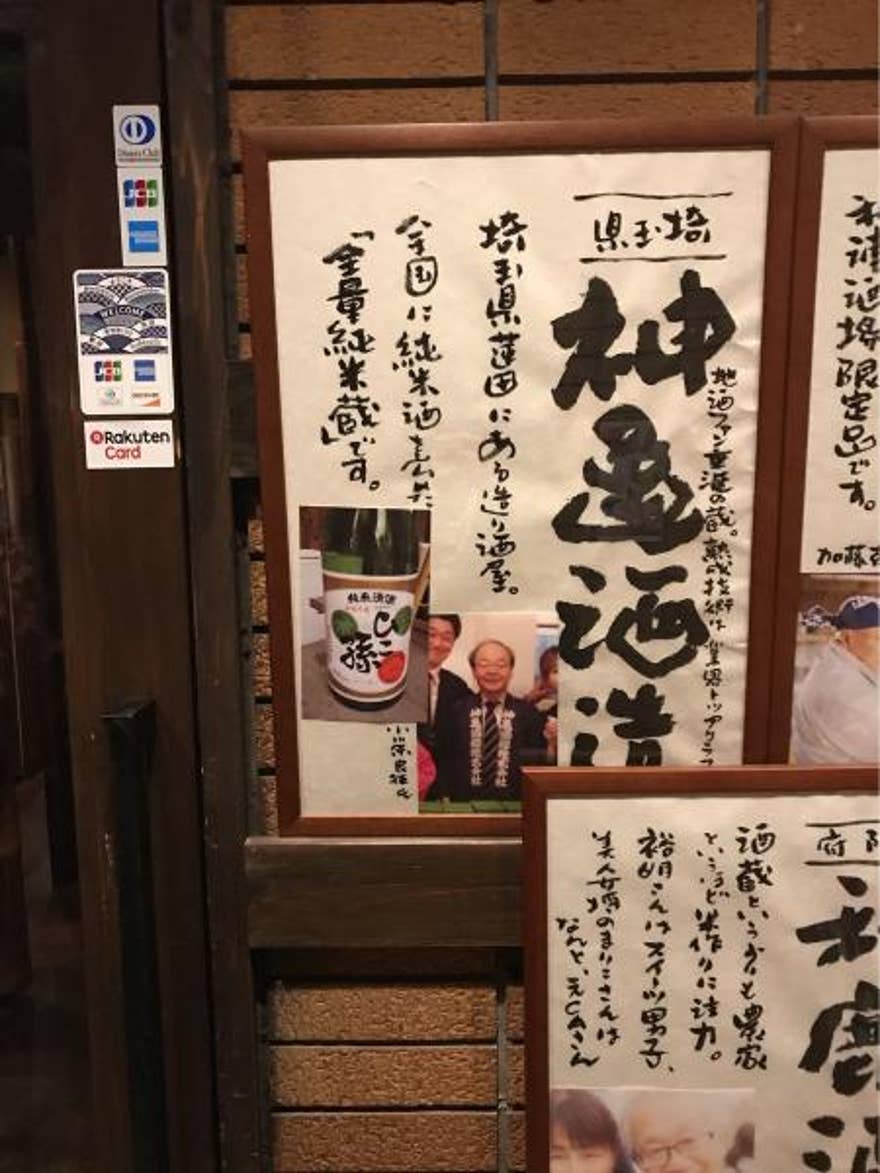 Diners Club
JCB
WELCOME
JCB
Rakuten
Card
埼玉県
神亀酒造
地酒ファン垂涎の蔵。熟成技術は業界トップクラス
埼玉県蓮田にある造り酒屋。
全国に純米酒を広めた
「全量純米蔵」です。
純米清酒
ひこ孫
小川原良征氏
神亀酒造株式会社
神亀酒造株式会社
利酒場限定品です。
加藤
府
利鹿酒
酒蔵というよりも農家
というほど米作りに注力。
裕明さんはスイーツ男子、
美人女将のまりこさんは
なんと、元CAさん